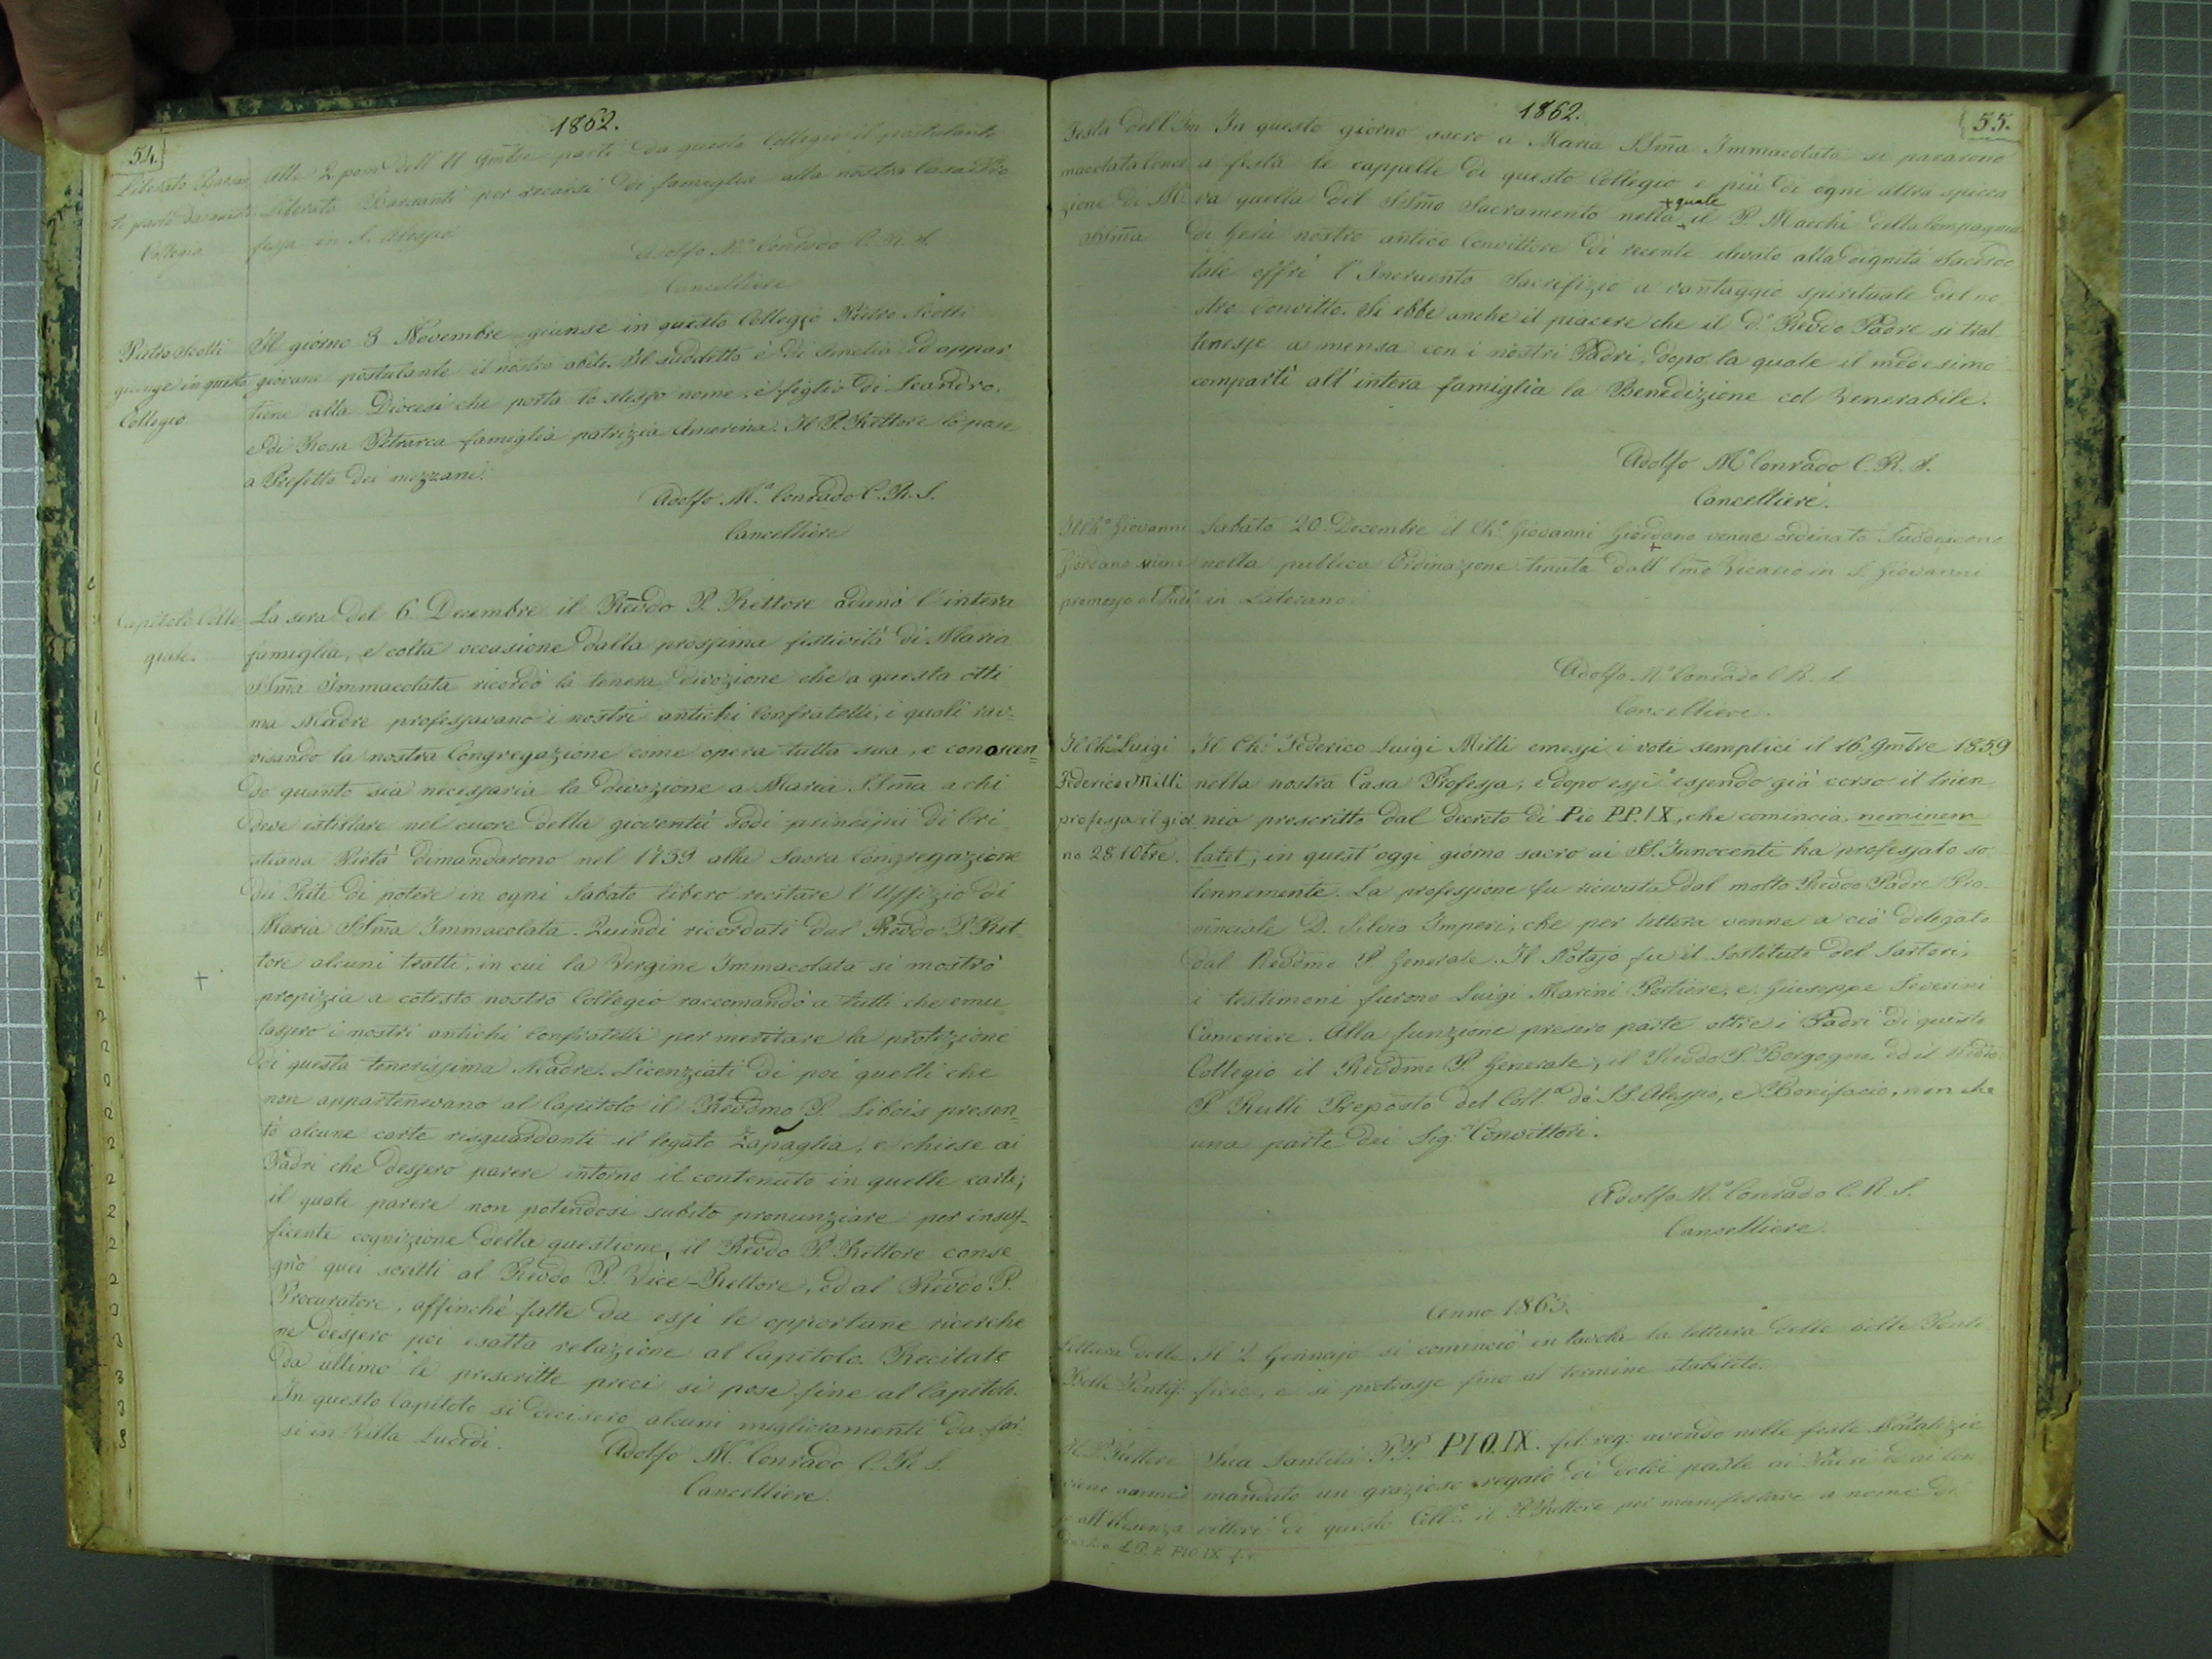 1862.
54.
Liberato Barsan
ti parte da questo
Collegio.
Alle 2 pom. dell' 11 9mbre partì da questo Collegio il postulante
Liberato Barsanti per recarsi di famiglia alla nostra Casa Pro
fessa in S. Alessio.
Adolfo M.a Conrado C. R. S.
Cancelliere
Pietro Scotti
giunge in questo
Collegio.
Il giorno 3 Novembre giunse in questo Collegio Pietro Scotti
giovane postulante il nostro abito. Il suddetto è di Amelia ed appar-
tiene alla Diocesi che porta lo stesso nome, è figlio di Leandro,
e di Rosa Petrarca famiglia patrizia Amerina. Il P. Rettore lo pose
a Prefetto dei mezzani.
Adolfo M.a Conrado C. R. S.
Cancelliere
Capitolo Colle
giale.
La sera del 6 Decembre il Revdo P. Rettore adunò l'intera
famiglia, e colta occasione dalla prossima festività di Maria
SSma Immacolata ricordò la tenera divozione che a questa otti
ma Madre professavano i nostri antichi Confratelli, i quali rav=
visando la nostra Congregazione come opera tutta sua, e conoscen=
do quanto sia necessaria la divozione a Maria SSma a chi
deve istillare nel cuore della gioventù sodi principii di Cri=
stiana Pietà dimandarono nel 1759 alla Sacra Congregazione
dei Riti di potere in ogni Sabato libero recitare l'Uffizio di
Maria SSma Immacolata. Quindi ricordati dal Revdo P. Ret-
tore alcuni tratti, in cui la Vergine Immacolata si mostrò
propizia a cotesto nostro Collegio raccomandò a tutti che emu
lassero i nostri antichi Confratelli per meritare la protezione
di questa tenerissima Madre. Licenziati di poi quelli che
non appartenevano al Capitolo il Revdmo P. Libois presen=
tò alcune carte risguardanti il legato Zapaglia, e chiese ai
Padri che dessero parere intorno il contenuto in quelle carte;
il quale parere non potendosi subito pronunziare per insuf-
ficente cognizione della questione, il Revdo P. Rettore conse
gnò quei scritti al Revdo P. Vice-Rettore, ed al Revdo P.
Procuratore, affinchè fatte da essi le opportune ricerche
ne dessero poi esatta relazione al Capitolo. Recitate
da ultimo le prescritte preci si pose fine al Capitolo.
In questo Capitolo si decisero alcuni miglioramenti da far-
si in Villa Lucidi.
Adolfo M.a Conrado C. R. S.
Cancelliere.
1862.
55.
Festa dell'Im
macolata Conce
zione di M.
SSma
In questo giorno sacro a Maria SSma Immacolata si pararono
a festa le cappelle di questo Collegio e più di ogni altra spicca
va quella del SSmo Sacramento nella quale il P. Macchi della Compagnia
di Gesù nostro antico Convittore di recente elevato alla dignità Sacerdo
tale offrì l'Incruento Sacrifizio a vantaggio spirituale del no
stro Convitto. Si ebbe anche il piacere che il d.o Revdo Padre si trat
tenesse a mensa con i nostri Padri, dopo la quale il medesimo
compartì all'intera famiglia la Benedizione col Venerabile.
Adolfo M.a Conrado C. R. S.
Cancelliere.
Il Ch.o Giovanni
Giordano viene
promosso al Sudd
Sabato 20 Decembre il Ch.o Giovanni Giordano venne ordinato Suddiacono
nella publica Ordinazione tenuta dall' Emo Vicario in S. Giovanni
in Laterano.
Adolfo M.a Conrado C. R. S.
Cancelliere.
Il Ch.o Luigi
Federico Milli
professa il gior
no 28 10bre.
Il Ch.o Federico Luigi Milli emessi i voti semplici il 16 9mbre 1859
nella nostra Casa Professa, e dopo essi essendo già corso il trien
nio prescritto dal decreto di Pio PP. IX, che comincia, neminem
latet, in quest'oggi giorno sacro ai SS. Innocenti ha professato so
lennemente. La professione fu ricevuta dal molto Revdo Padre Pro-
vinciale D. Silvio Imperi, che per lettera venne a ciò delegato
dal Revdmo P. Generale. Il Notajo fu il Sostituto del Sartori,
i testimoni furono Luigi Marini Portiere, e Giuseppe Severini
Cameriere. Alla funzione presero parte oltre i Padri di questo
Collegio il Revdmo P. Generale, il Revdo P. Borgogno, ed il Revdo
P. Rulli Preposto del Coll.o de' SS. Alessio, e Bonifacio, non che
una parte dei Sig.ri Convittori.
Adolfo M.a Conrado C. R. S.
Cancelliere.
Anno 1863.
Lettura delle
Bolle Pontif:
Il 2 Gennajo si cominciò in tavola la lettura delle bolle Ponti
ficie, e si protrasse fino al termine stabilito.
Il P. Rettore
viene ammes
so all' Udienza
di Sua S. P. P. PIO IX f. r.
Sua Santità PP. PIO. IX. fel: reg: avendo nelle feste Natalizie
mandato un grazioso regalo di dolci paste ai Padri ed ai Con
vittori di questo Coll.o il P. Rettore per manifestare a nome di